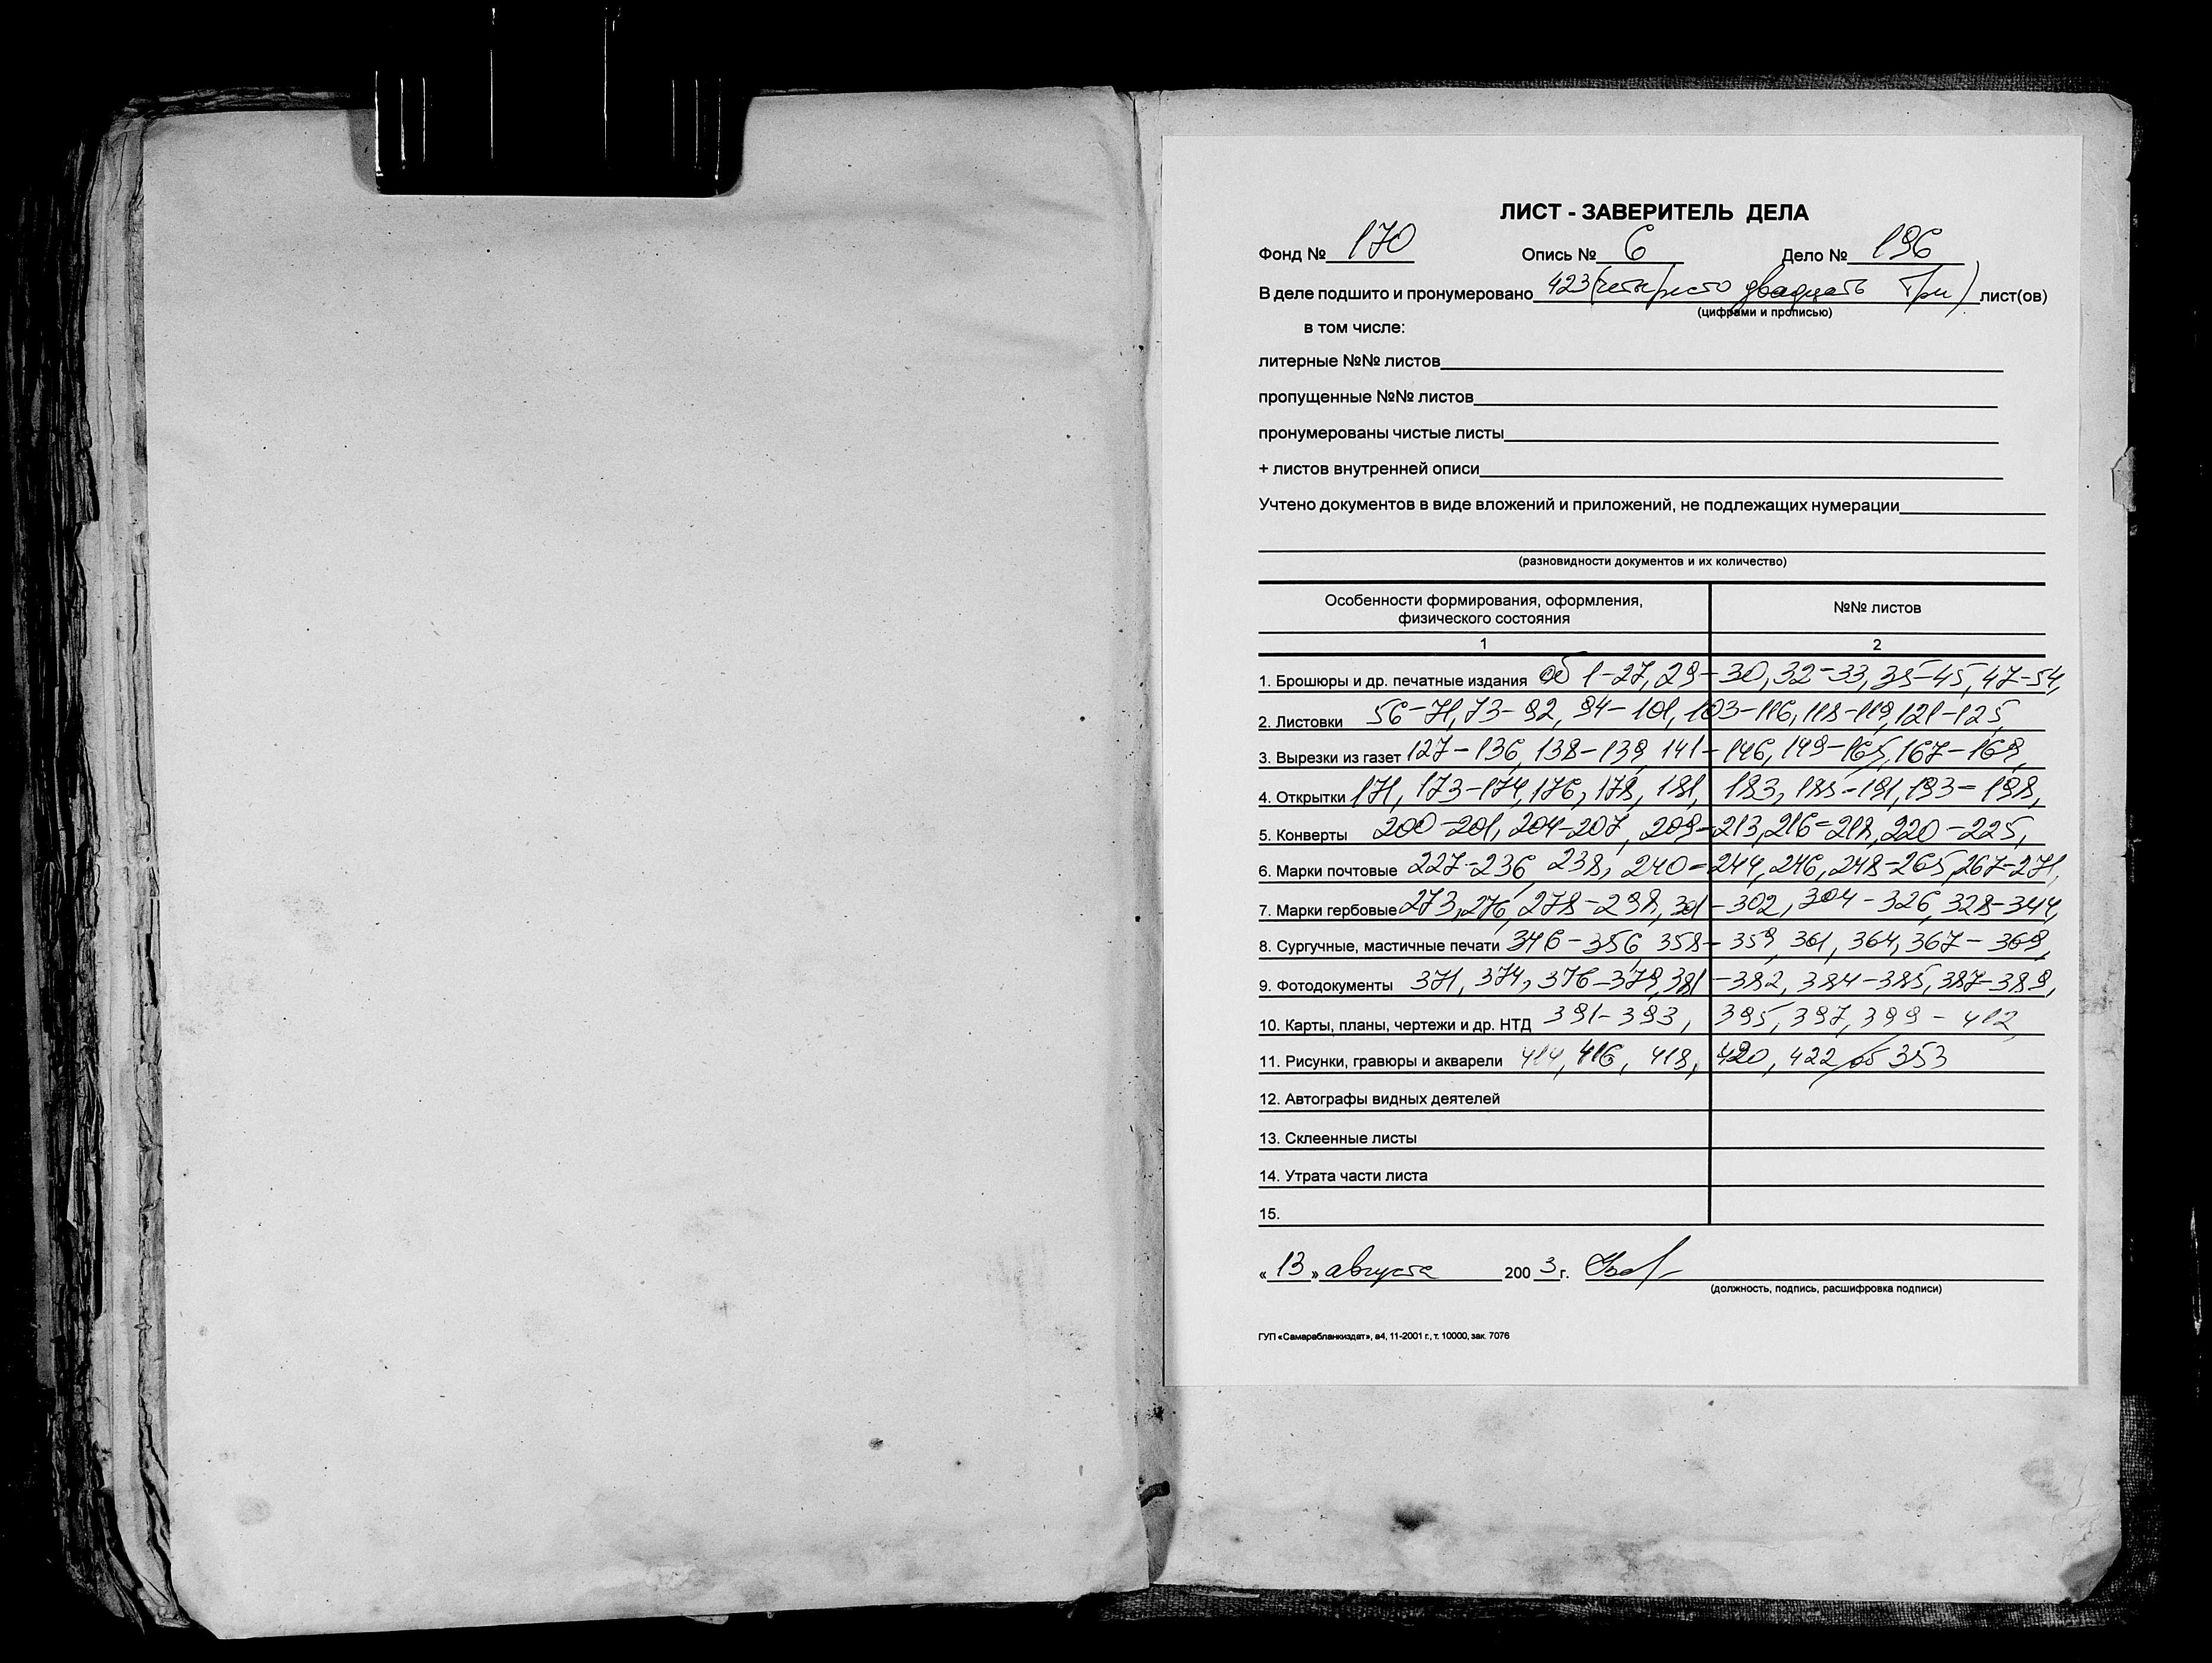 ЛИСТ - ЗАВЕРИТЕЛЬ ДЕЛА
Фонд № 170 Опись № 6 Дело № 196
В деле подшито и пронумеровано 423 (четыресто двадцать три) лист(ов)
(цифрами и прописью)
в том числе:
литерные №№ листов
пропущенные №№ листов
пронумерованы чистые листы
+ листов внутренней описи
Учтено документов в виде вложений и приложений, не подлежащих нумерации
(разновидности документов и их количество)
Особенности формирования, оформления, №№ листов
физического состояния
1 2
1. Брошюры и др. печатные издания об 1-27, 29-30, 32-33, 35-45, 47-54,
2. Листовки 56-71, 73-92, 94-101, 103-116, 118-119, 121-125,
3. Вырезки из газет 127-136, 138-139, 141-146, 149-165, 167-169,
4. Открытки 171, 173-174, 176, 178, 181, 183, 188-191, 193-198,
5. Конверты 200-201, 204-207, 209-213, 216-218, 220-225,
6. Марки почтовые 227-236, 238, 240-244, 246, 248-265, 267-271,
7. Марки гербовые 273, 276, 278-298, 301-302, 304-326, 328-344,
8. Сургучные, мастичные печати 346-356, 358-359, 361, 364, 367-369,
9. Фотодокументы 371, 374, 376-379, 381-382, 384-385, 387-389,
10. Карты, планы, чертежи и др. НТД 391-393, 395, 397, 399-412,
11. Рисунки, гравюры и акварели 414, 416, 418, 420, 422 об 353
12. Автографы видных деятелей
13. Склеенные листы
14. Утрата части листа
15.
« 13 » августа 2003 г.
(должность, подпись, расшифровка подписи)
ГУП «Самарабланкиздат», а4, 11-2001 г., т. 10000, зак. 7076